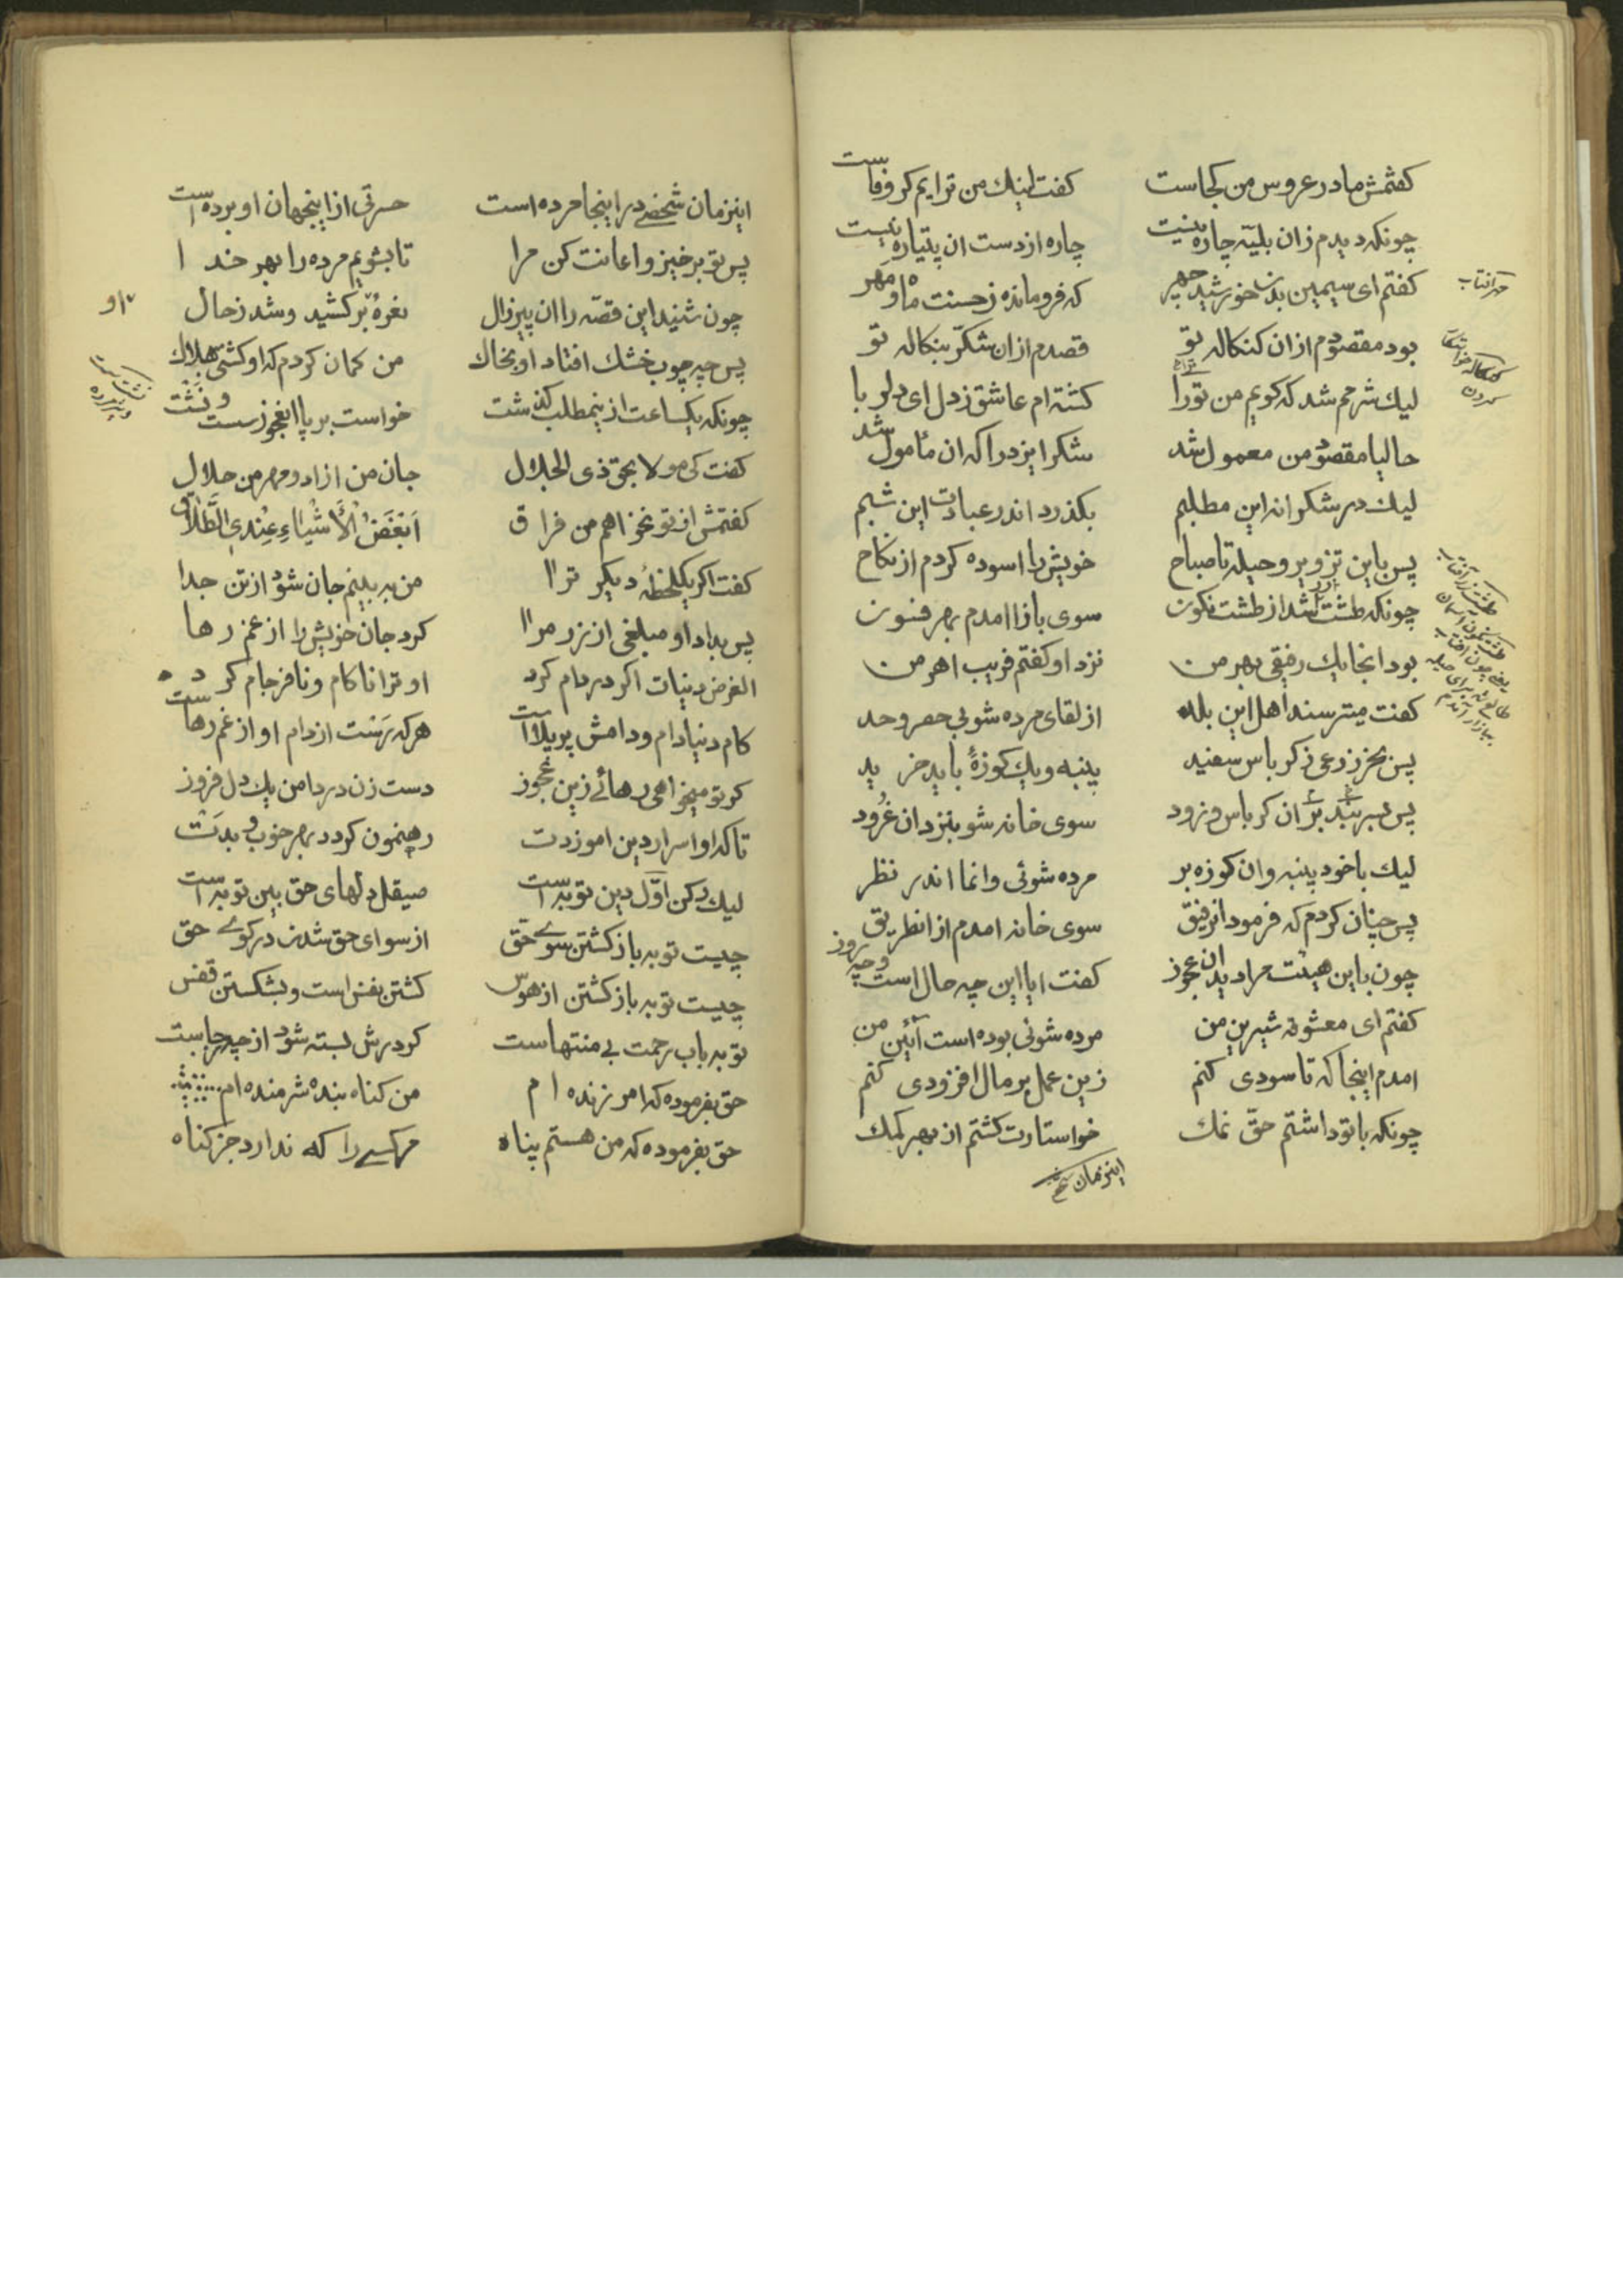 کفتمش مادر عروس من کجاست
کفت اینك من ترایم کر وفاست
چونکه دیدم زان بلیّه چاره نیست
چاره از دست ان پتیاره نیست
کفتم ای سیمین بدن خورشید چهر
که فرومانده ز حسنت ماه و مهر
مهر آفتاب
بود مقصودم ازان کنکاله تو
قصدم ازان شکّر بنکاله تو
کنکاله خواستکاری کردن
لیك شرمم شد که کویم من تورا
کشته ام عاشق ز دل ای دلربا
حالیا مقصود من معمول شد
شکر ایزد را که ان مأمول شد
لیك در شکرانه این مطلبم
بکذرد اندر عبادت این شبم
پس باین تزویر و حیله تا صباح
خویش را اسوده کردم از نکاح
چونکه طشت زر شد از طشت نکون
سوی بازار امدم بهر فسون
بود انجا یك رفیقی بهر من
نزد او کفتم فریب اهرمن
کفت میترسند اهل این بلد
از لقای مرده شوی بی حصر و حد
پس بخر ذرعی ز کرباس سفید
پنبه و یك کوزهٔ باید خرید
پس بسر بند بر ان کرباس و زود
سوی خانه شو بنزد ان غرود
لیك با خود پنبه و ان کوزه بر
مرده شوئی وانما اندر نظر
پس چنان کردم که فرمود انرفیق
سوی خانه امدم از انطریق
چون باین هیئت مرا دید ان عجوز
کفت ایا این چه حال است و چه روز
کفتم ای معشوقه شیرین من
مرده شوئی بوده است آئین من
امدم اینجا که تا سودی کنم
زین عمل بر مال افزودی کنم
چونکه با تو داشتم حقّ نمك
خواستارت کشتم از بهر کمك
اینزمان شخصی
اینزمان شخصی در اینجا مرده است
حسرتی از اینجهان او برده است
پس تو برخیز و اعانت کن مرا
تا بشویم مرده را بهر خدا
چون شنید این قصّه را ان پیرزال
نعرهٔ بر کشید و شد ز حال
او
پس چه چوب خشك افتاد او بخاك
من کمان کردم که او کشتی هلاك
چونکه یکساعت ازینمطلب کذشت
خواست برپا انعجوز سست و نشت
کفت کی مولا بحق ذی الجلال
جان من ازاد و مهر من حلال
کفتمش از تو نخواهم من فراق
اَبْغَضُ الْأَشْیٰاءِ عِنْدِی الطَّلٰاق
کفت اکر یکلحظهٔ دیکر ترا
من به بینم جان شود از تن جدا
پس بداد او مبلغی از زر مرا
کرد جان خویش را از غم رها
الغرض دنیات اکر در دام کرد
او ترا ناکام و نافرجام کرد
کام دنیا دام و دامش پر بلاست
هرکه رَست از دام او از غم رهاست
کر تو میخواهی رهائے زین عجوز
دست زن در دامن یك دل فروز
تا که او اسرار دین اموزدت
رهنمون کردد بهر خوب و بدت
لیك رکن اوّل دین توبه است
صیقل دلهای حق بین توبه است
چیست توبه باز کشتن سوے حق
از سوای حق شدن در کوے حق
چیست توبه باز کشتن از هوس
کشتن نفس است و بشکستن قفس
توبه باب رحمت بی منتهاست
کر درش بسته شود از چه رجاست
حق بفرموده که امرزنده ام
من کناه بنده شرمنده ام
حق بفرموده که من هستم پناه
هر کسے را که ندارد جز کناه